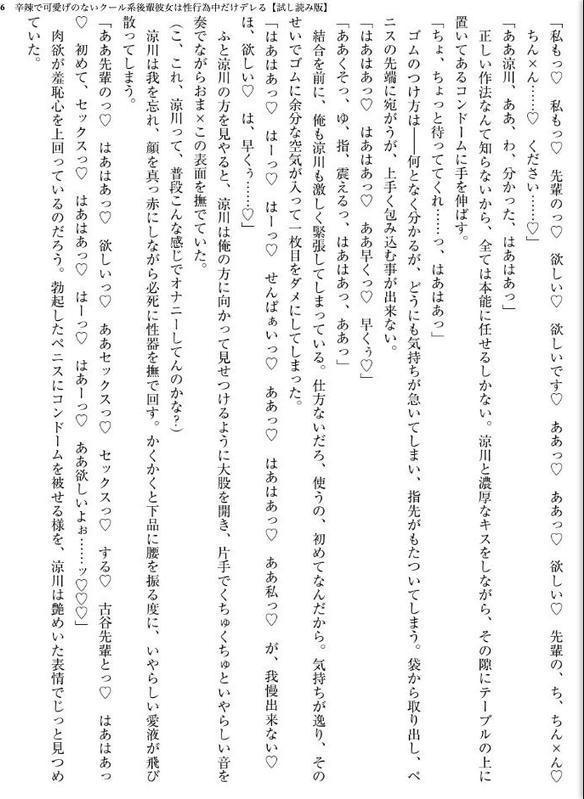 6 辛辣で可愛げのないクール系後輩彼女は性行為中だけデレる【試し読み版】
「私もっ♡ 私もっ♡ 先輩のっ♡ 欲しい♡ 欲しいです♡ ああっ♡ ああっ♡ 欲しい♡ 先輩の、ち、ちん×ん♡
ちん×ん……♡ ください……♡」
「ああ涼川、ああ、わ、分かった、はあはあっ」
正しい作法なんて知らないから、全ては本能に任せるしかない。涼川と濃厚なキスをしながら、その隙にテーブルの上に
置いてあるコンドームに手を伸ばす。
「ちょ、ちょっと待っててくれ……っ、はあはあっ」
ゴムのつけ方は――何となく分かるが、どうにも気持ちが急いてしまい、指先がもたついてしまう。袋から取り出し、ペ
ニスの先端に宛がうが、上手く包み込む事が出来ない。
「はあはあっ♡ はあはあっ♡ ああ早くっ♡ 早くぅ♡」
「ああくそっ、ゆ、指、震えるっ、はあはあっ、ああっ」
結合を前に、俺も涼川も激しく緊張してしまっている。仕方ないだろ、使うの、初めてなんだから。気持ちが逸り、その
せいでゴムに余分な空気が入って一枚目をダメにしてしまった。
「はあはあっ♡ はーっ♡ はーっ♡ せんぱぁいっ♡ ああっ♡ はあはあっ♡ ああ私っ♡ が、我慢出来ない♡
ほ、欲しい♡ は、早くぅ……♡」
ふと涼川の方を見やると、涼川は俺の方に向かって見せつけるように大股を開き、片手でくちゅくちゅといやらしい音を
奏でながらおま×この表面を撫でていた。
(こ、これ、涼川って、普段こんな感じでオナニーしてんのかな?)
涼川は我を忘れ、顔を真っ赤にしながら必死に性器を撫で回す。かくかくと下品に腰を振る度に、いやらしい愛液が飛び
散ってしまう。
「ああ先輩のっ♡ はあはあっ♡ 欲しいっ♡ ああセックスっ♡ セックスっ♡ する♡ 古谷先輩とっ♡ はあはあっ
♡ 初めて、セックスっ♡ はあはあっ♡ はーっ♡ はあーっ♡ ああ欲しいよぉ……ッ♡♡♡」
肉欲が羞恥心を上回っているのだろう。勃起したペニスにコンドームを被せる様を、涼川は艶めいた表情でじっと見つめ
ていた。